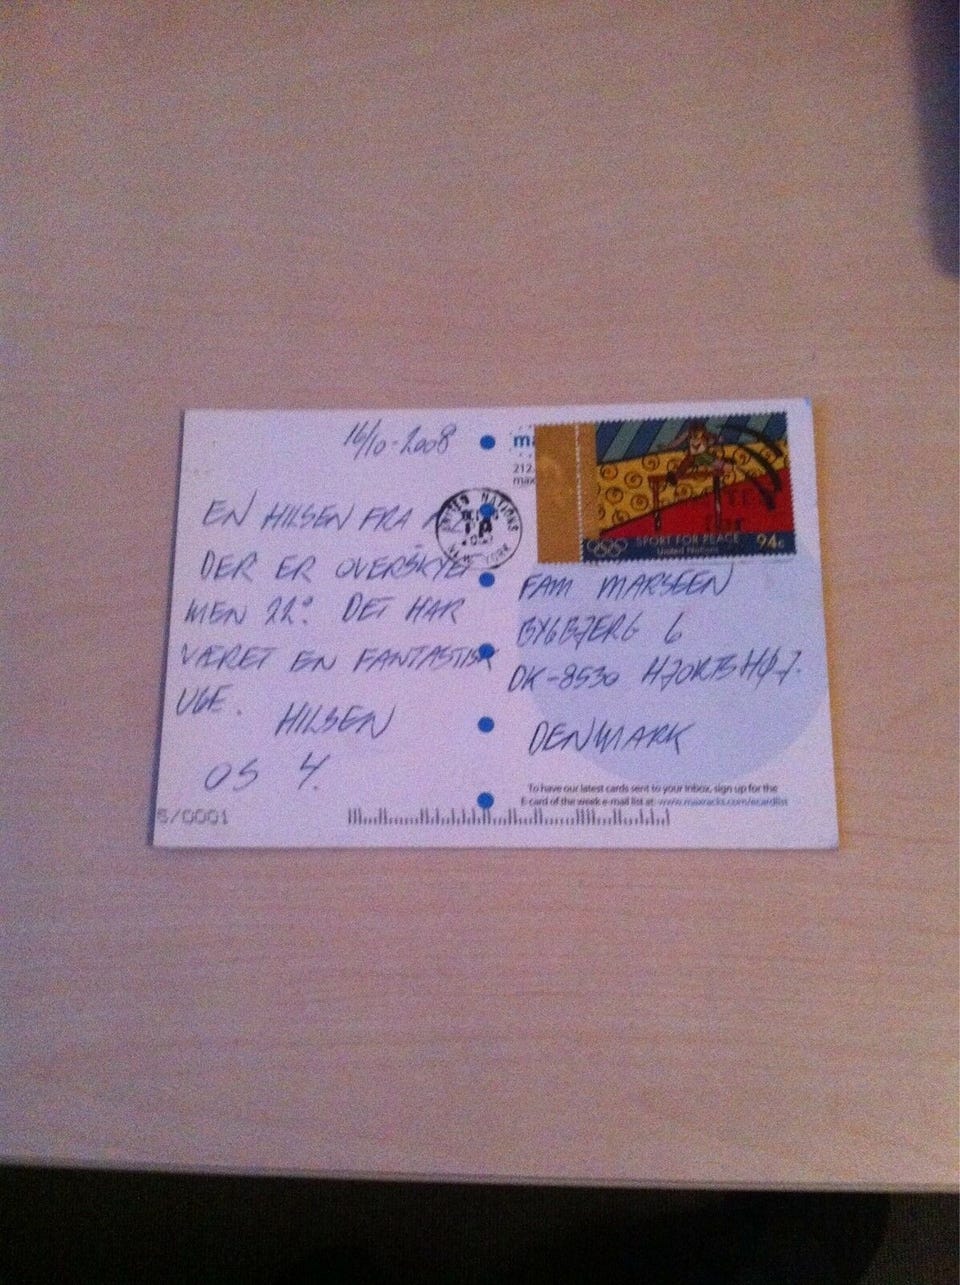 16/10-2008
EN HILSEN FRA
DER ER OVERSKYET
MEN 22° DET HAR
VÆRET EN FANTASTISK
UGE. HILSEN
OS 4.
5/0001
ma
212.
max
UNITED NATIONS
NEW YORK
SPORT FOR PEACE
United Nations
94c
FAM MARSEEN
BYGBJERG 6
DK-8530 HJORTSHØJ.
DENMARK
To have our latest cards sent to your inbox, sign up for the
E-card of the week e-mail list at: www.maxracks.com/ecardlist